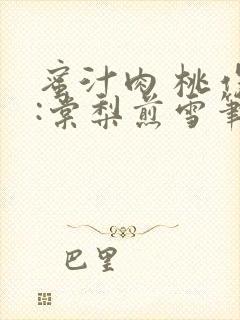 蜜汁肉桃作
:棠梨煎雪筆
巴里